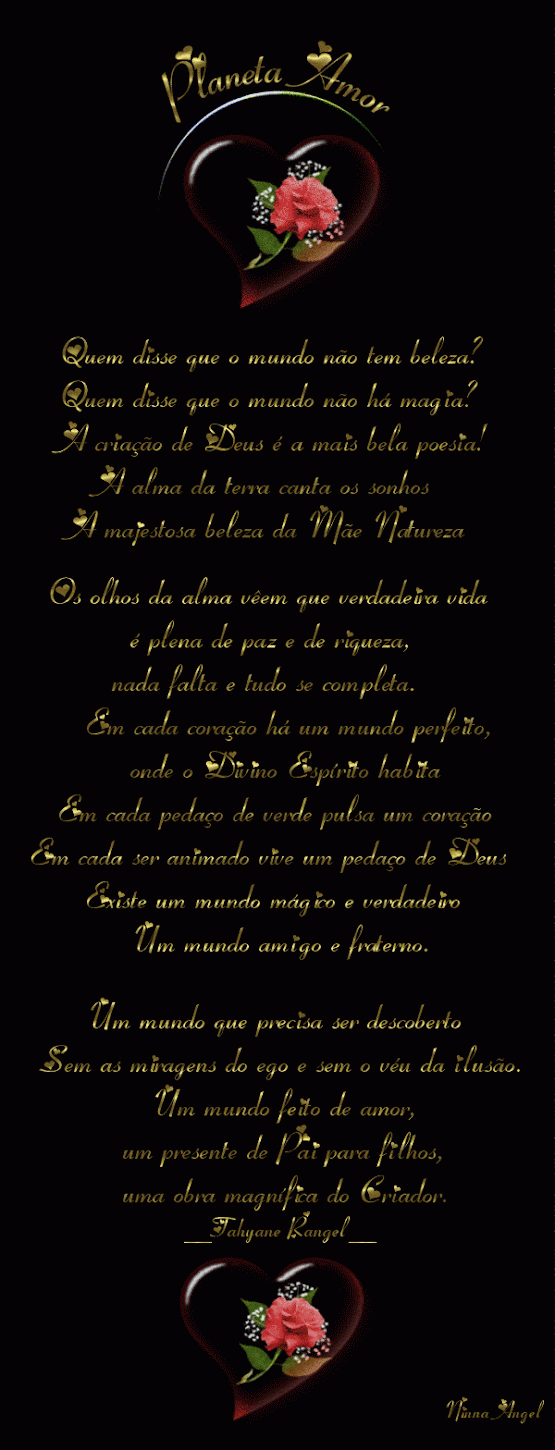 Planeta Amor
Quem disse que o mundo não tem beleza?
Quem disse que o mundo não há magia?
A criação de Deus é a mais bela poesia!
A alma da terra canta os sonhos
A majestosa beleza da Mãe Natureza
Os olhos da alma vêem que verdadeira vida
é plena de paz e de riqueza,
nada falta e tudo se completa.
Em cada coração há um mundo perfeito,
onde o Divino Espírito habita
Em cada pedaço de verde pulsa um coração
Em cada ser animado vive um pedaço de Deus
Existe um mundo mágico e verdadeiro
Um mundo amigo e fraterno.
Um mundo que precisa ser descoberto
Sem as miragens do ego e sem o véu da ilusão.
Um mundo feito de amor,
um presente de Pai para filhos,
uma obra magnífica do Criador.
__Tahyane Rangel__
Ninna Angel